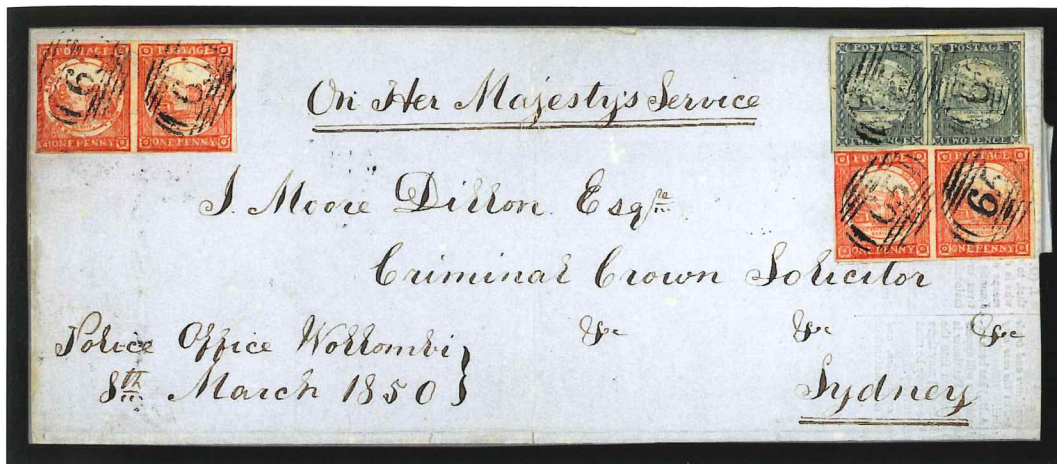 POSTAGE POSTAGE
ONE PENNY ONE PENNY
POSTAGE POSTAGE
TWO PENCE TWO PENCE
POSTAGE POSTAGE
ONE PENNY ONE PENNY
On Her Majesty's Service
J. Moore Dillon Esqre
Criminal Crown Solicitor
&c &c &c
Police Office Wollombi
8th March 1850
Sydney